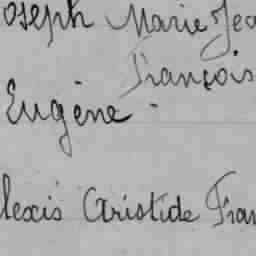 oseph Marie Jea
François
Eugène -
lexis Aristide Fran